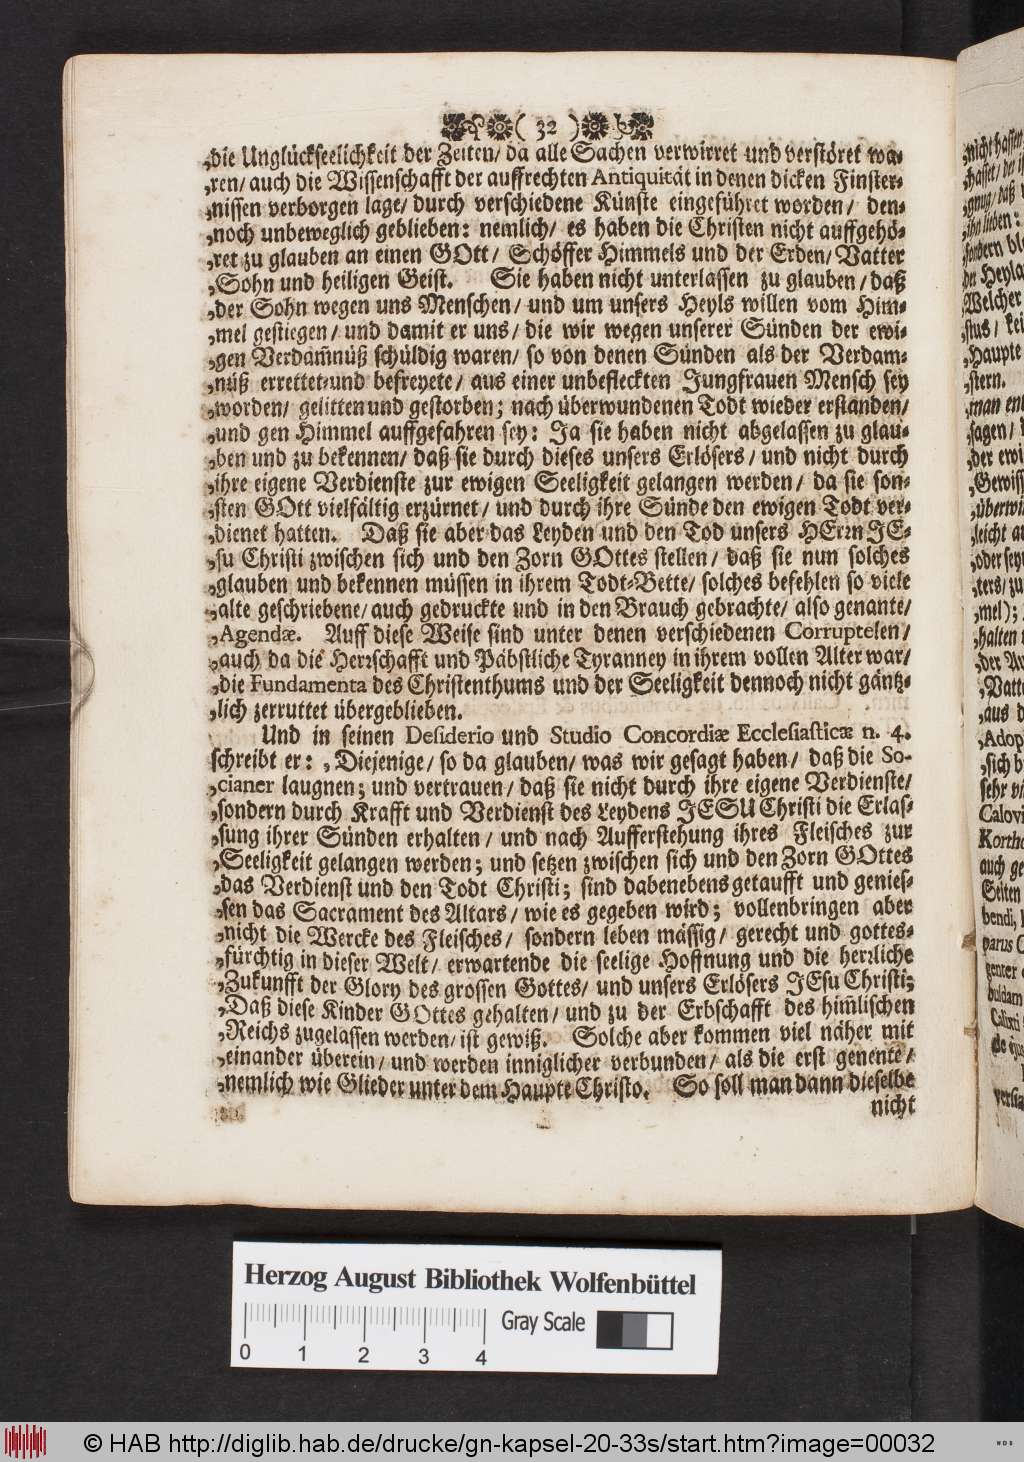 ( 32 )
„die Unglückseelichkeit der Zeiten/ da alle Sachen verwirret und verstöret wa-
„ren/ auch die Wissenschafft der auffrechten Antiquität in denen dicken Finster-
„nissen verborgen lage/ durch verschiedene Künste eingeführet worden/ den-
„noch unbeweglich geblieben: nemlich/ es haben die Christen nicht auffgehö-
„ret zu glauben an einen GOtt/ Schöffer Himmels und der Erden/ Vatter
„Sohn und heiligen Geist. Sie haben nicht unterlassen zu glauben/ daß
„der Sohn wegen uns Menschen/ und um unsers Heyls willen vom Him-
„mel gestiegen/ und damit er uns/ die wir wegen unserer Sünden der ewi-
„gen Verdam̃nüß schüldig waren/ so von denen Sünden als der Verdam-
„nüß errettet-und befreyete/ aus einer unbefleckten Jungfrauen Mensch sey
„worden/ gelitten und gestorben; nach überwundenen Todt wieder erstanden/
„und gen Himmel auffgefahren sey: Ja sie haben nicht abgelassen zu glau-
„ben und zu bekennen/ daß sie durch dieses unsers Erlösers/ und nicht durch
„ihre eigene Verdienste zur ewigen Seeligkeit gelangen werden/ da sie son-
„sten GOtt vielfältig erzürnet/ und durch ihre Sünde den ewigen Todt ver-
„dienet hatten. Daß sie aber das Leyden und den Tod unsers HErrn JE-
„su Christi zwischen sich und den Zorn GOttes stellen/ daß sie nun solches
„glauben und bekennen müssen in ihrem Todt-Bette/ solches befehlen so viele
„alte geschriebene/ auch gedruckte und in den Brauch gebrachte/ also genante/
„Agendæ. Auff diese Weise sind unter denen verschiedenen Corruptelen/
„auch da die Herrschafft und Päbstliche Tyranney in ihrem vollen Alter war/
„die Fundamenta des Christenthums und der Seeligkeit dennoch nicht gäntz-
„lich zerruttet übergeblieben.
Und in seinen Desiderio und Studio Concordiæ Ecclesiasticæ n. 4.
schreibt er: „Diejenige/ so da glauben/ was wir gesagt haben/ daß die So-
„cianer laugnen; und vertrauen/ daß sie nicht durch ihre eigene Verdienste/
„sondern durch Krafft und Verdienst des Leydens JESU Christi die Erlas-
„sung ihrer Sünden erhalten/ und nach Aufferstehung ihres Fleisches zur
„Seeligkeit gelangen werden; und setzen zwischen sich und den Zorn GOttes
„das Verdienst und den Todt Christi; sind dabenebens getaufft und genies-
„sen das Sacrament des Altars/ wie es gegeben wird; vollenbringen aber
„nicht die Wercke des Fleisches/ sondern leben mässig/ gerecht und gottes-
„fürchtig in dieser Welt/ erwartende die seelige Hoffnung und die herrliche
„Zukunfft der Glory des grossen Gottes/ und unsers Erlösers JEsu Christi;
„Daß diese Kinder GOttes gehalten/ und zu der Erbschafft des him̃lischen
„Reichs zugelassen werden/ ist gewiß. Solche aber kommen viel näher mit
„einander überein/ und werden inniglicher verbunden/ als die erst genente/
„nemlich wie Glieder unter dem Haupte Christo. So soll man dann dieselbe
nicht
Herzog August Bibliothek Wolfenbüttel
Gray Scale
0 1 2 3 4
© HAB http://diglib.hab.de/drucke/gn-kapsel-20-33s/start.htm?image=00032